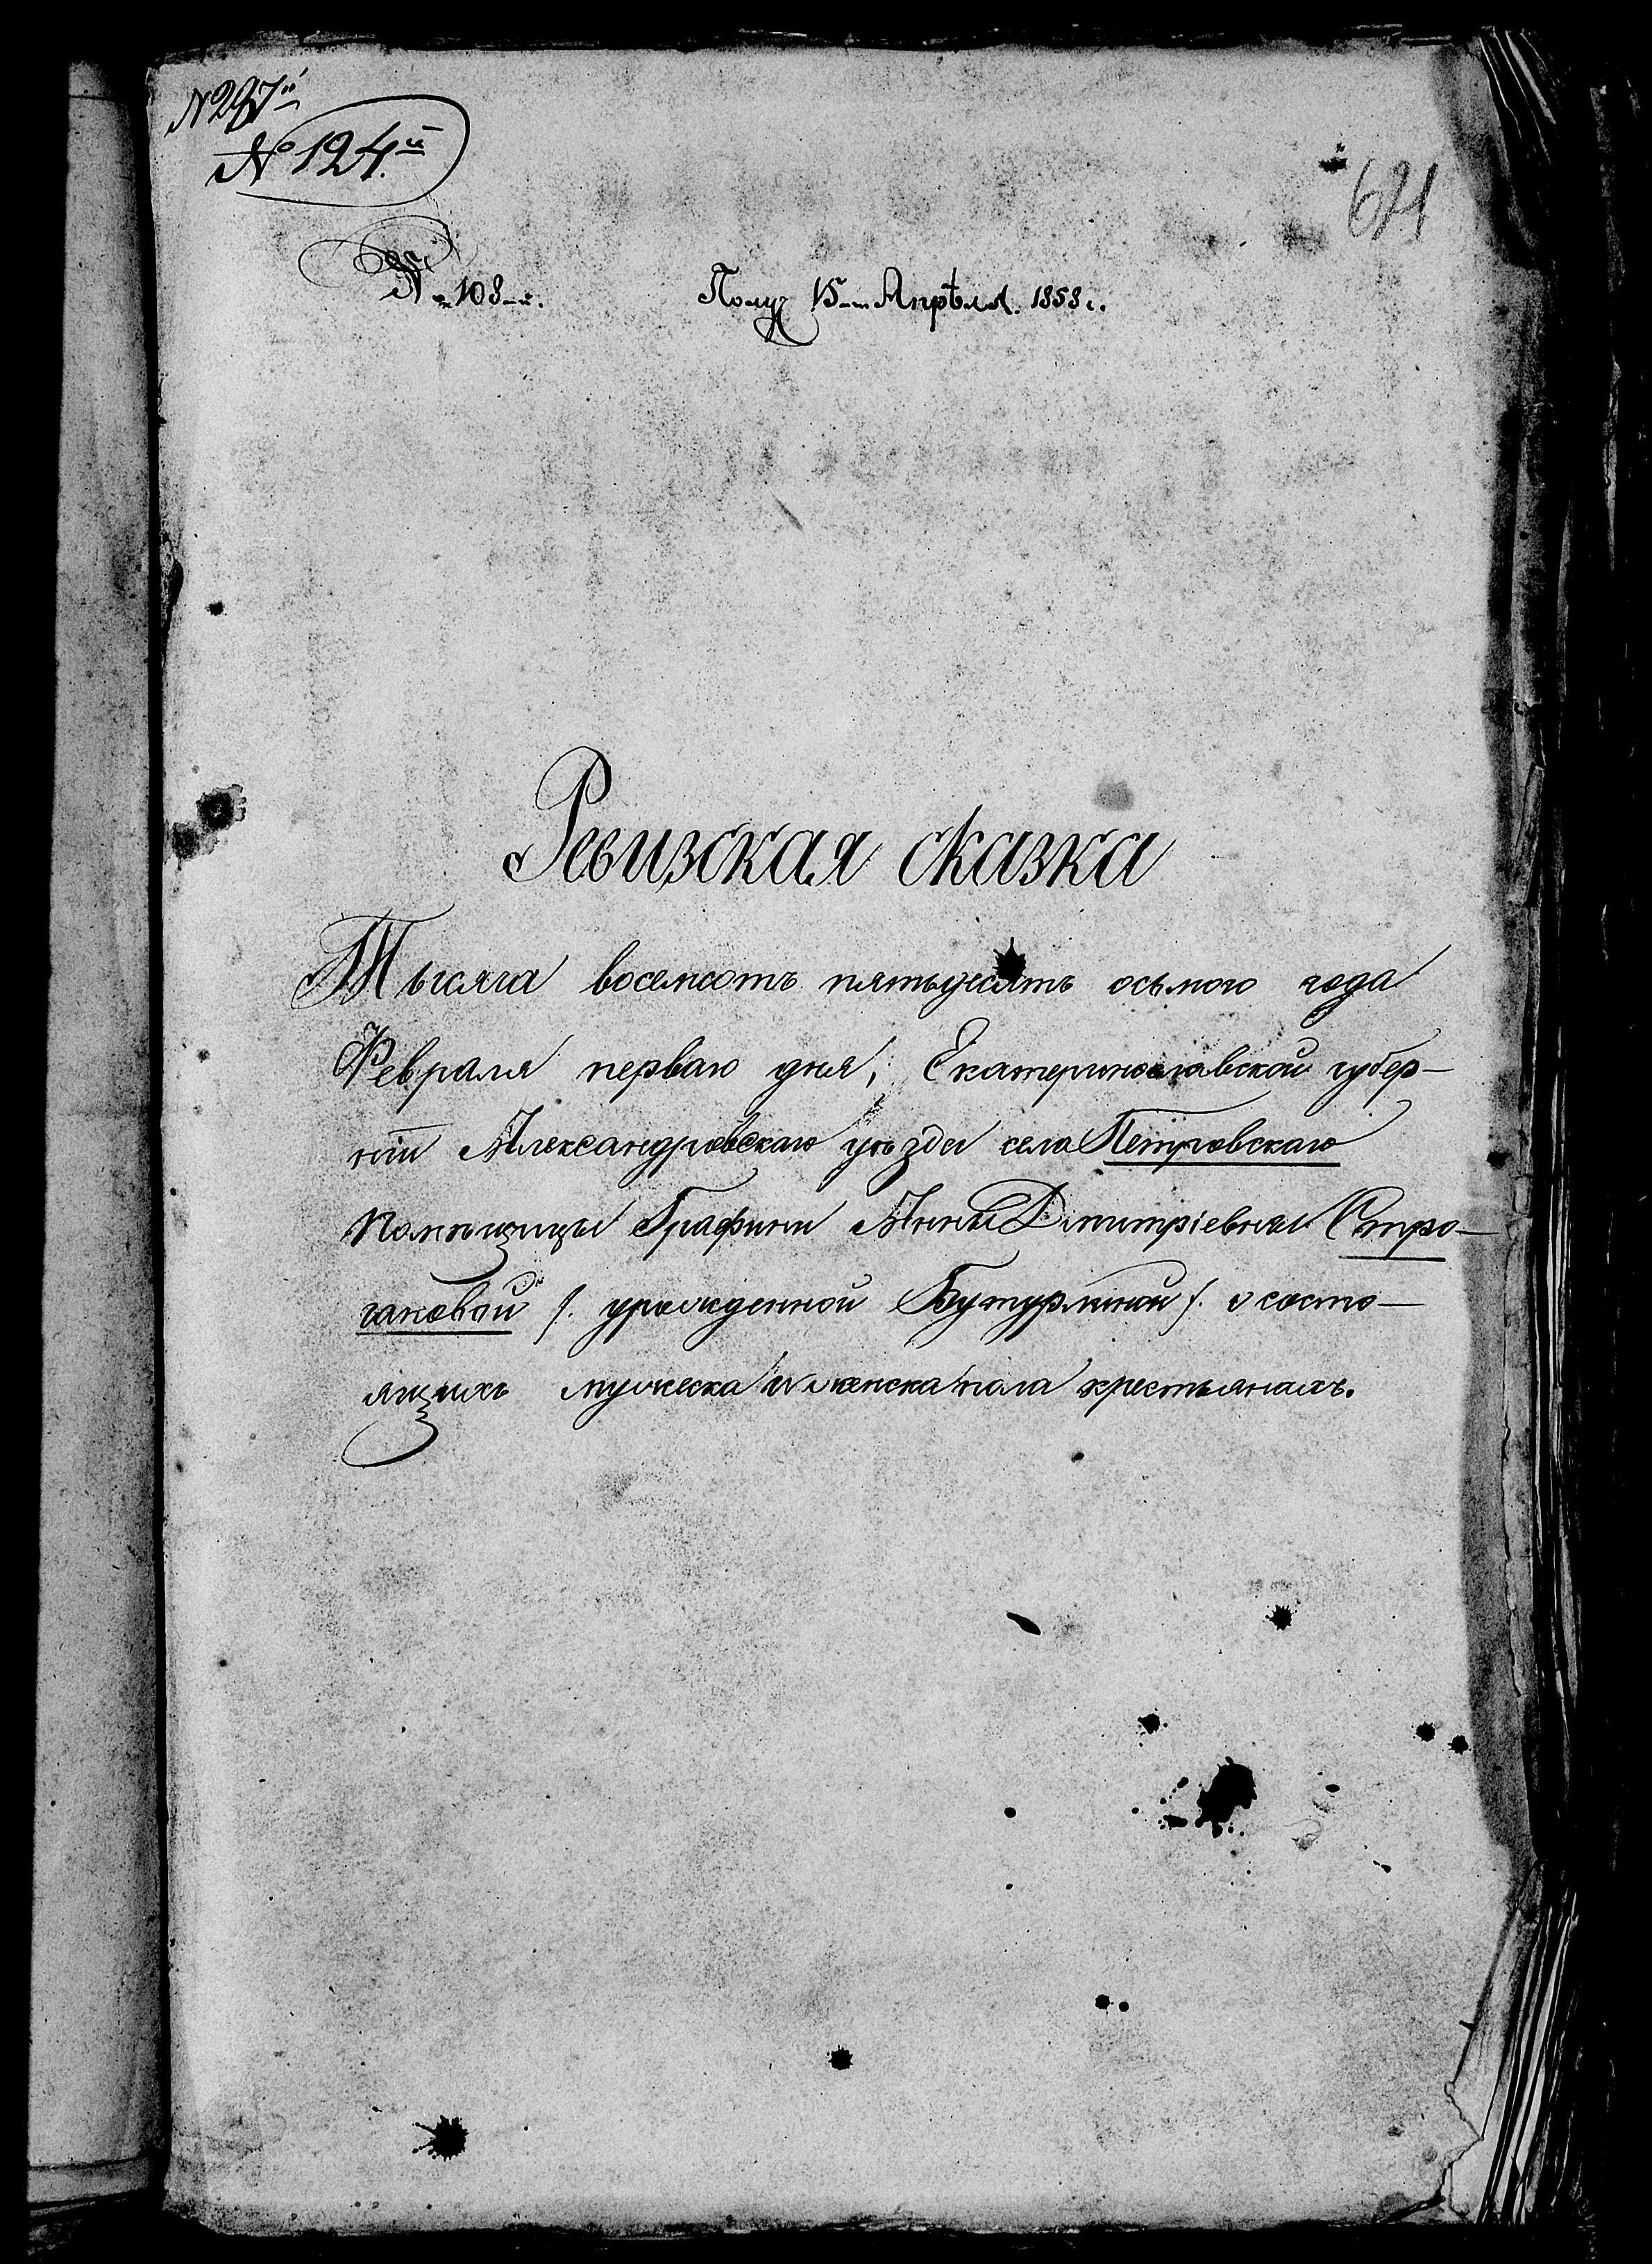 N 297й
№ 124.й
621
№ 108-й.
Получ 15-го Апрѣля. 1858 г.
Ревизская сказка
Тысяча восемсотъ пятьдесятъ осьмого года
Февраля перваго дня, Екатеринославской губер-
ніи Александровскаго уѣзда села Петровскаго
Помѣщицы Графини Анны Дмитріевны Стро-
гановой /. урожденной Бутурлиной /. о состо-
ящихъ мужеска и женска пола крестьянахъ.